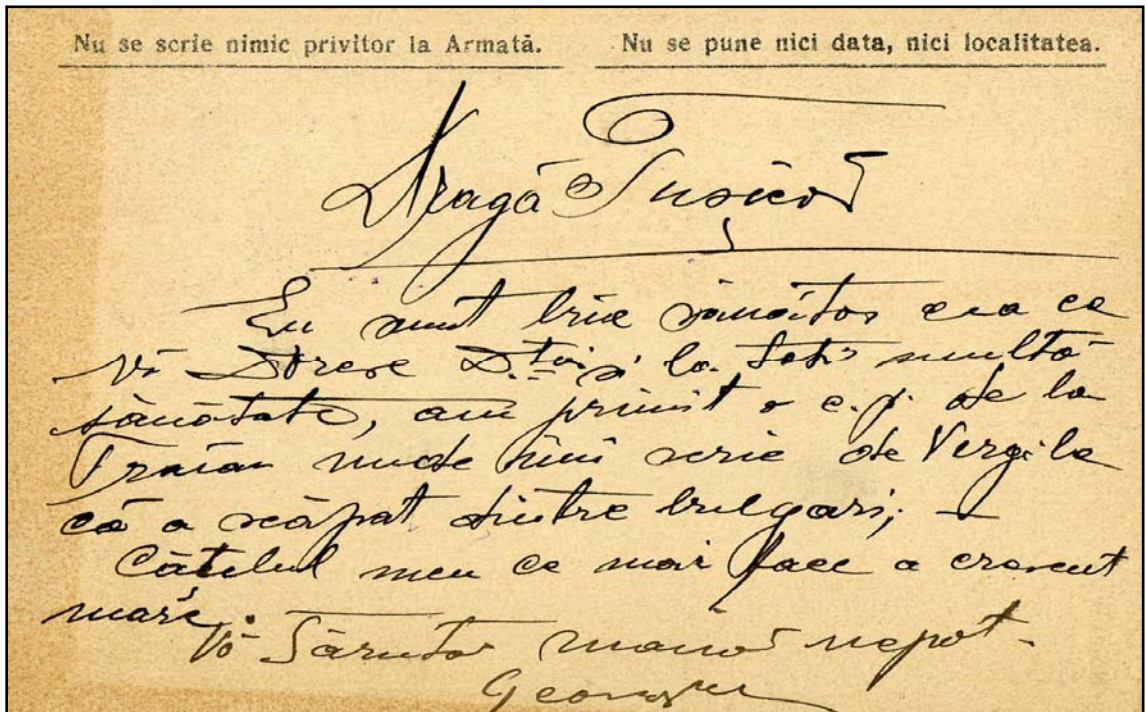 Nu se scrie nimic privitor la Armată. Nu se pune nici data, nici localitatea.
Dragă Tușică
Eu sunt bine sănătos ceea ce
vă Doresc D.tale și la toți multă
sănătate, am primit o c.p. de la
Traian unde îmi scrie de Vergile
că a scăpat dintre bulgari; –
Cățelul meu ce mai face a crescut
mare
Vă Sărută mâna nepot.